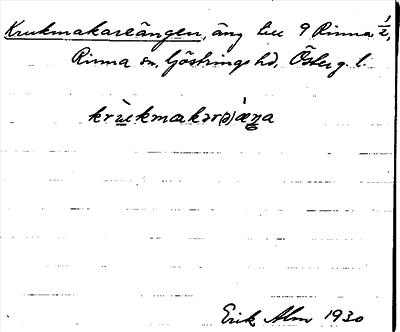 Krukmakareängen, äng till 9 Rinna 1/2,
Rinna sn, Göstrings hd, Österg. l.
krùkmakər(ə)æ̀ŋa
Erik Alm 1930